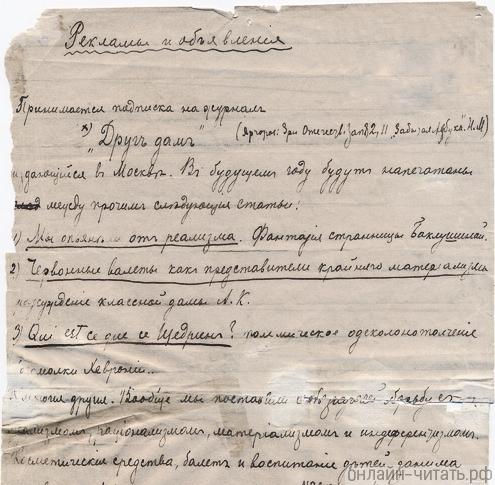 Рекламы и объявленія
Принимается подписка на журналъ
х)
„Другъ дамъ“
издающійся въ Москвѣ. Въ будущемъ году будутъ напечатаны
между прочимъ слѣдующія статьи:
1) Мы опьянѣли отъ реализма. Фантазія странницы Баклушиной.
2) Червонные валеты какъ представители крайняго матеріализма
разсужденіе классной дамы А. К.
3) Qui est ce que ce Щедринъ? коммическое одеколонотолченіе
богомолки Хавроніи..
И многія другія. Вообще мы поставили борьбу съ
реализмомъ, раціонализмомъ, матеріализмомъ и индеферентизмомъ.
Косметическія средства, балетъ и воспитаніе дѣтей займетъ
онлайн-читать.рф